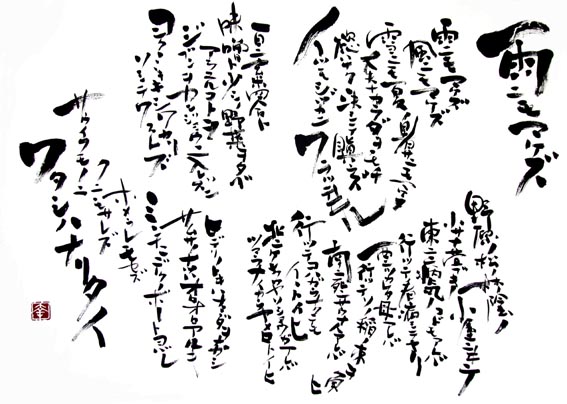 雨ニモマケズ
雨ニモマケズ
風ニモマケズ
雪ニモ夏ノ暑サニモマケヌ
丈夫ナカラダヲモチ
慾ハナク決シテ瞋ラズ
イツモシズカニワラッテヰル
一日ニ玄米四合ト
味噌ト少シノ野菜ヲタベ
アラユルコトヲ
ジブンヲカンジョウニ入レズニ
ヨクミキキシワカリ
ソシテワスレズ
野原ノ松ノ林ノ蔭ノ
小サナ萓ブキノ小屋ニヰテ
東ニ病気ノコドモアレバ
行ッテ看病シテヤリ
西ニツカレタ母アレバ
行ッテソノ稲ノ束ヲ負ヒ
南ニ死ニサウナ人アレバ
行ッテコハガラナクテモ
イヽトイヒ
北ニケンクヮヤソショウガアレバ
ツマラナイカラヤメロトイヒ
ヒデリノトキハナミダヲナガシ
サムサノナツハオロオロアルキ
ミンナニデクノボートヨバレ
ホメラレモセズ
クニモサレズ
サウイフモノニ
ワタシハナリタイ